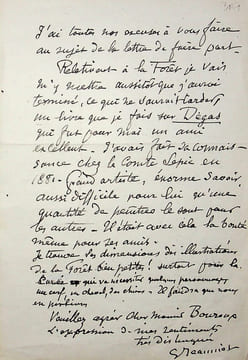 J'ai toutes mes excuses à vous faire
au sujet de la lettre de faire part
Relativement à la Forêt je vais
m'y mettre aussitôt que j'aurai
terminé, ce qui ne saurait tarder
un livre que je fais sur Degas
qui fut pour moi un ami
excellent. J'avais fait sa connais-
sance chez le Comte Lepic en
188 Grand artiste, énorme savoir
aussi difficile pour lui qu'une
quantité de peintres le sont pour
les autres. Il était avec cela la bonté
même pour ses amis.
Je trouve les dimensions des illustrations
de la Forêt bien petites! surtout pour la
qui va nécessiter quelques personnages
un cerf, un cheval, des chiens. Il faudra que nous
en parlions
Veuillez agréer cher Monsieur
l'expression de mes sentiments
très distingués
G Jeanniot